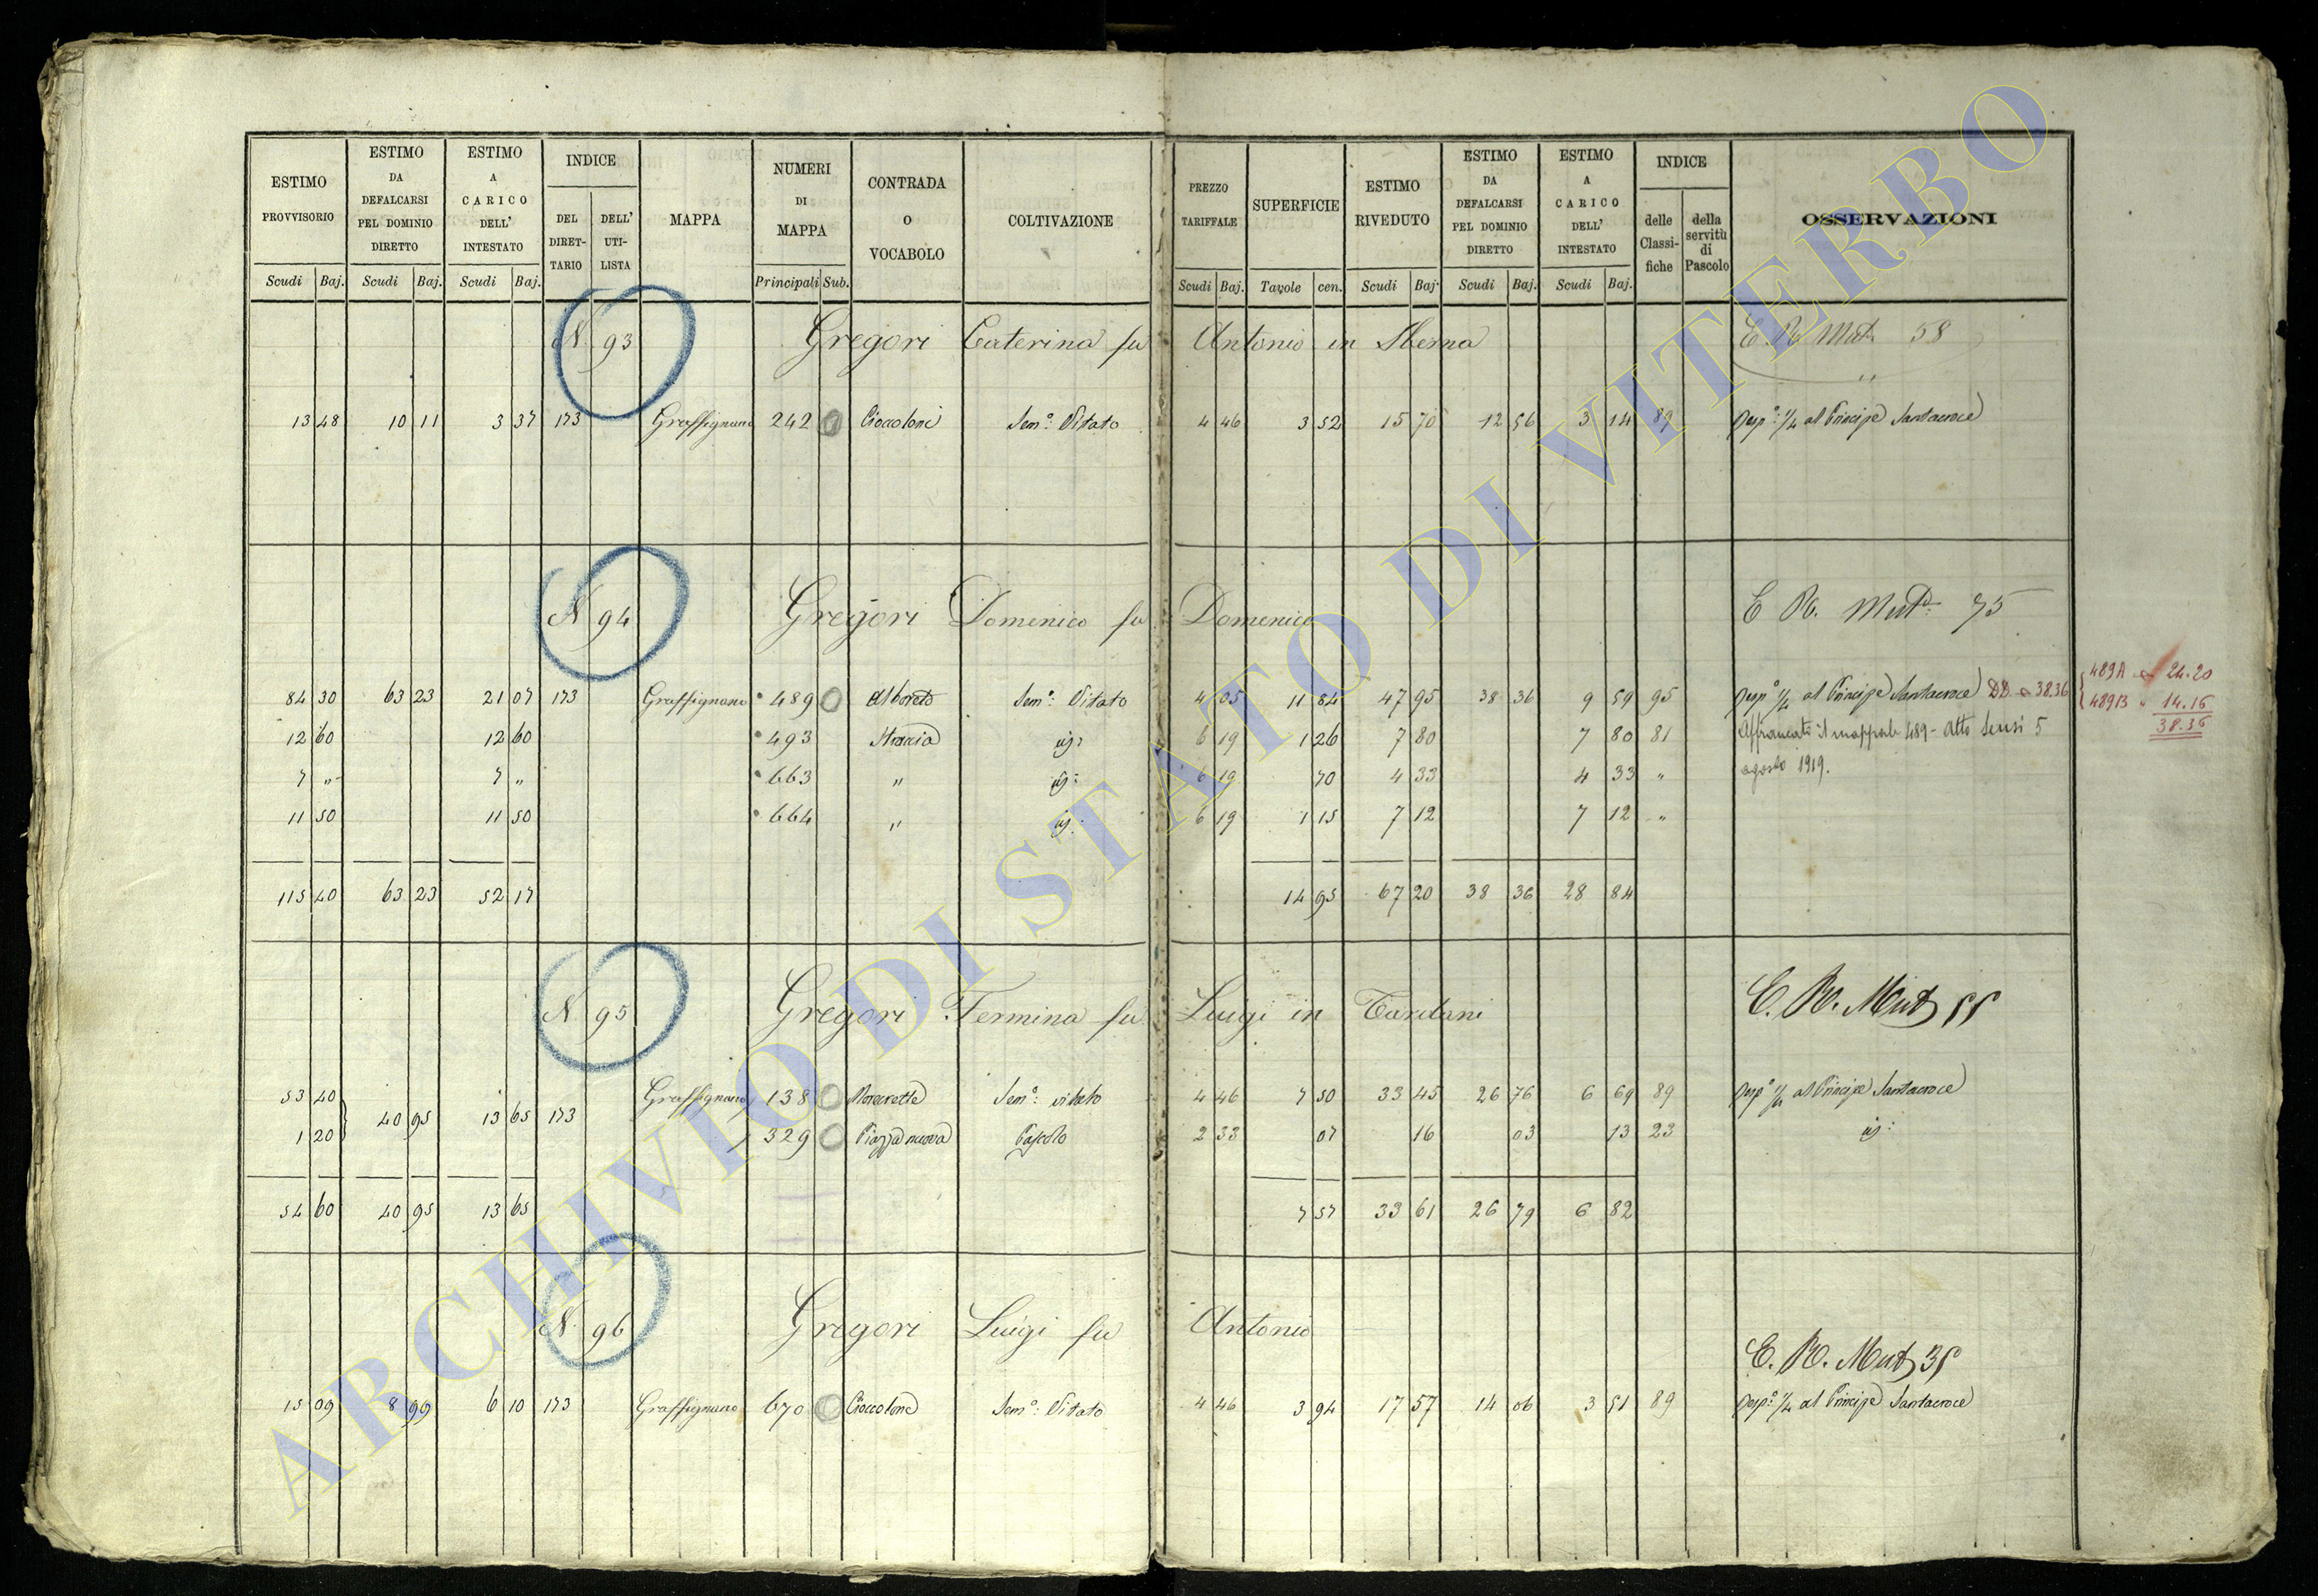 ESTIMO PROVVISORIO
ESTIMO DA DEFALCARSI PEL DOMINIO DIRETTO
ESTIMO A CARICO DELL' INTESTATO
INDICE
DEL DIRET- TARIO
DELL' UTI- LISTA
MAPPA
NUMERI DI MAPPA
CONTRADA O VOCABOLO
COLTIVAZIONE
PREZZO TARIFFALE
SUPERFICIE
ESTIMO RIVEDUTO
ESTIMO DA DEFALCARSI PEL DOMINIO DIRETTO
ESTIMO A CARICO DELL' INTESTATO
INDICE
delle Classi- fiche
della servitù di Pascolo
OSSERVAZIONI
Scudi Baj. Scudi Baj. Scudi Baj. Principali Sub. Scudi Baj. Tavole cen. Scudi Baj. Scudi Baj. Scudi Baj.
N 93 Gregori Caterina fu Antonio in Sberna E. R. Mut. 58
13 48 10 11 3 37 173 Graffignano 242 Cioccoloni Sem.o Vitato 4 46 3 52 15 70 12 56 3 14 89 1/4 al Principe Santacroce
N 94 Gregori Domenico fu Domenico E R. Mut. 75
84 30 63 23 21 07 173 Graffignano 489 Alboreto Sem.o Vitato 4 05 11 84 47 95 38 36 9 59 95 1/4 al Principe Santacroce DD 38.36 489A 24.20
489B " 14.16
38.36
12 60 12 60 493 Straccia 6 19 1 26 7 80 7 80 81 Affrancato il mappale 489 - Atto Sensi 5
7 „ 7 „ 663 „ 6 19 70 4 33 4 33 „ agosto 1919.
11 50 11 50 664 „ 6 19 1 15 7 12 7 12 „
115 40 63 23 52 17 14 95 67 20 38 36 28 84
N 95 Gregori Fermina fu Luigi in Tardani E. R. Mut 55
53 40 Graffignano 138 Sem.o vitato 4 46 7 50 33 45 26 76 6 69 89 1/4 al Principe Santacroce
40 95 13 65 173
1 20 329 Piazza nuova Pascolo 2 33 07 16 03 13 23
54 60 40 95 13 65 7 57 33 61 26 79 6 82
N. 96 Gregori Luigi fu Antonio
E. R. Mut 35
15 09 8 99 6 10 173 Graffignano 670 Cioccolone Sem.o Vitato 4 46 3 94 17 57 14 06 3 51 89 1/4 al Principe Santacroce
ARCHIVIO DI STATO DI VITERBO